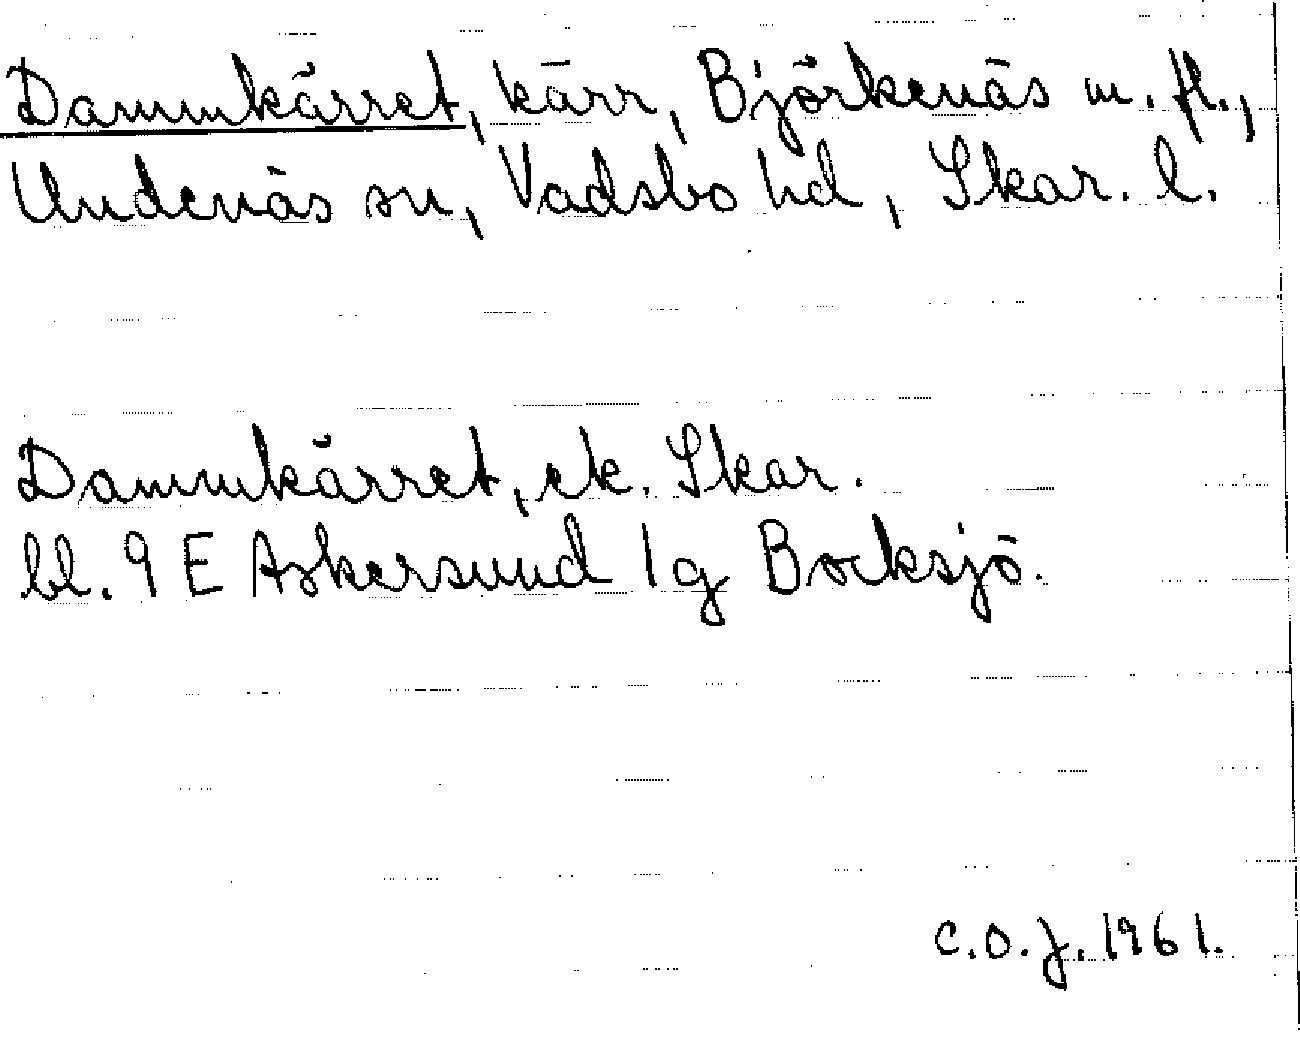 Dammkärret, kärr, Björkenäs m. fl.,
Undenäs sn, Vadsbo hd, Skar. l.
Dammkärret, ek. Skar.
bl. 9 E Askersund 1 g Bocksjö.
C.O.J. 1961.